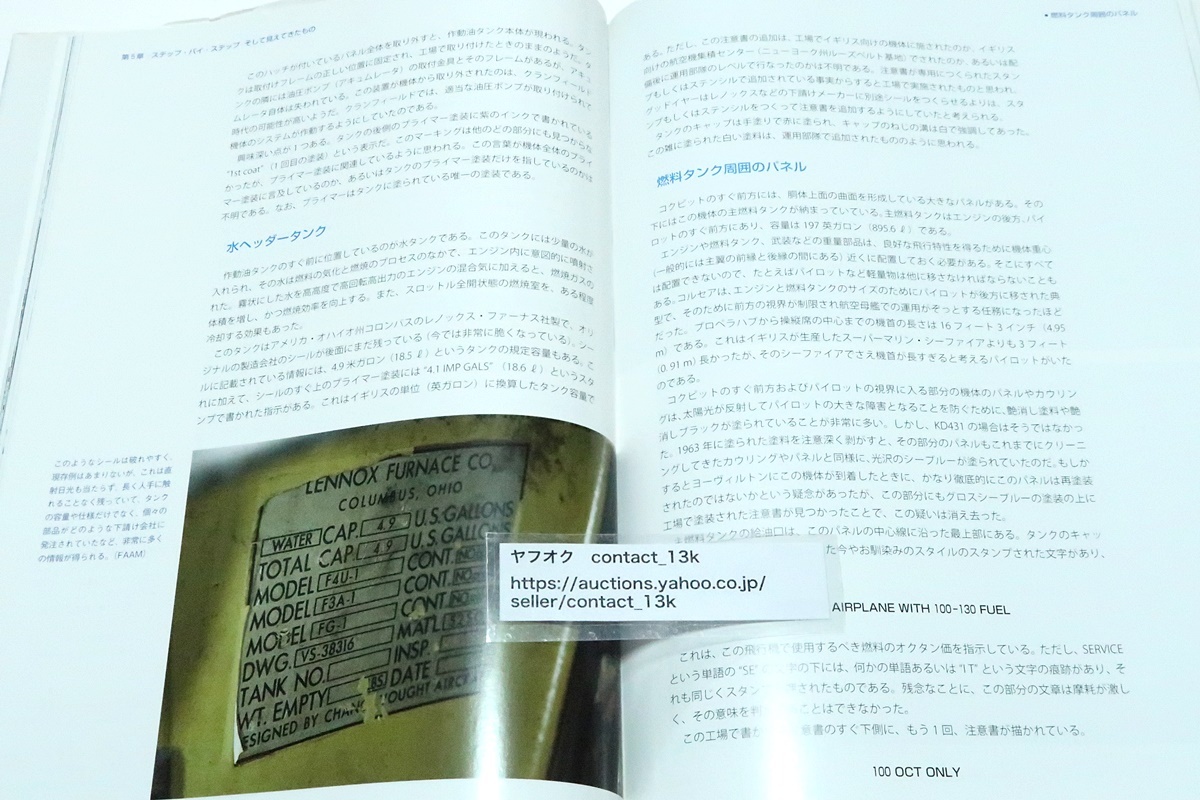 第5章 ステップ・バイ・ステップ そして見えてきたもの
このハッチが付いているパネル全体を取り外すと、作動油タンク本体が現われる。タン
クは取付けフレームの正しい位置に固定され、工場で取り付けたときのままのようだ。
ンクの隣には油圧ポンプ（アキュムレータ）の取付金具とそのフレームがあるが、アキュ
ムレータ自体は失われている。この装置が機体から取り外されたのは、クランフィールド
時代の可能性が高いようだ。クランフィールドでは、適当な油圧ポンプが取り付けられて
機体のシステムが作動するようにしていたのである。
興味深い点が1つある。タンクの後側のプライマー塗装に紫のインクで書かれている
"1st coat"（1回目の塗装）という表示だ。このマーキングは他のどの部分にも見つからな
かったが、プライマー塗装に関連しているように思われる。この言葉が機体全体のプライ
マー塗装に言及しているのか、あるいはタンクのプライマー塗装だけを指しているのかは
不明である。なお、プライマーはタンクに塗られている唯一の塗装である。
水ヘッダータンク
作動油タンクのすぐ前に位置しているのが水タンクである。このタンクには少量の水が
入れられ、その水は燃料の気化と燃焼のプロセスのなかで、エンジン内に意図的に噴射さ
れた。霧状にした水を高高度で高回転高出力のエンジンの混合気に加えると、燃焼ガスの
体積を増し、かつ燃焼効率を向上する。また、スロットル全開状態の燃焼室を、ある程度
冷却する効果もあった。
このタンクはアメリカ・オハイオ州コロンバスのレノックス・ファーナス社製で、オリ
ジナルの製造会社のシールが後面にまだ残っている（今では非常に脆くなっている）。シー
ルに記載されている情報には、4.9米ガロン（18.5 ℓ）というタンクの規定容量もある。こ
れに加えて、シールのすぐ上のプライマー塗装には"4.1 IMP GALS"（18.6 ℓ）というスタ
ンプで書かれた指示がある。これはイギリスの単位（英ガロン）に換算したタンク容量で
このようなシールは破れやすく、
現存例はあまりないが、これは直
射日光も当たらず、長く人手に触
れることなく残っていて、タンク
の容量や仕様だけでなく、個々の
部品がどのような下請け会社に
発注されていたなど、非常に多く
の情報が得られる。（FAAM）
LENNOX FURNACE CO.
COLUMBUS, OHIO
WATER CAP. 4.9 U.S. GALLONS
TOTAL CAP. 4.9 U.S. GALLO
MODEL F4U-1 CONT. NO
MODEL F3A-1 CONT. NO
MODEL FG-1 CONT.
DWG. VS-38316 MATL
TANK NO. INSP.
WT. EMPTY DATE
ESIGNED BY CHANC OUGHT AIRCR
• 燃料タンク周囲のパネル
ある。ただし、この注意書の追加は、工場でイギリス向けの機体に施されたのか、イギリス
向けの航空機集積センター（ニューヨーク州ルーズベルト基地）でされたのか、あるいは配
備後に運用部隊のレベルで行なったのかは不明である。注意書が専用につくられたスタン
プもしくはステンシルで追加されている事実からすると工場で実施されたものと思われ、
グッドイヤーはレノックスなどの下請けメーカーに別途シールをつくらせるよりは、スタ
ンプもしくはステンシルをつくって注意書を追加するようにしていたと考えられる。
タンクのキャップは手塗りで赤に塗られ、キャップのねじの溝は白で強調してあった。
この雑に塗られた白い塗料は、運用部隊で追加されたもののように思われる。
燃料タンク周囲のパネル
コクピットのすぐ前方には、胴体上面の曲面を形成している大きなパネルがある。その
下にはこの機体の主燃料タンクが納まっていている。主燃料タンクはエンジンの後方、パイ
ロットのすぐ前方にあり、容量は197英ガロン（895.6 ℓ）である。
エンジンや燃料タンク、武装などの重量部品は、良好な飛行特性を得るために機体重心
（一般的には主翼の前縁と後縁の間にある）近くに配置しておく必要がある。そこにすべて
は配置できないので、たとえばパイロットなど軽量物は他に移さなければならないことも
ある。コルセアは、エンジンと燃料タンクのサイズのためにパイロットが後方に移された典
型で、そのために前方の視界が制限され航空母艦での運用がぞっとする任務になったほど
だった。プロペラハブから操縦席の中心までの機首の長さは16フィート3インチ（4.95
m）である。これはイギリスが生産したスーパーマリン・シーファイアよりも3フィート
（0.91 m）長かったが、そのシーファイアでさえ機首が長すぎると考えるパイロットがいた
のである。
コクピットのすぐ前方およびパイロットの視界に入る部分の機体のパネルやカウリン
グは、太陽光が反射してパイロットの大きな障害となることを防ぐために、艶消し塗料や艶
消しブラックが塗られていることが非常に多い。しかし、KD431の場合はそうではなかっ
た。1963年に塗られた塗料を注意深く剥がすと、その部分のパネルもこれまでにクリーニ
ングしてきたカウリングやパネルと同様に、光沢のシーブルーが塗られていたのだ。もしか
するとヨーヴィルトンにこの機体が到着したときに、かなり徹底的にこのパネルは再塗装
されたのではないかという疑念があったが、この部分にもグロスシーブルーの塗装の上に
工場で塗装された注意書が見つかったことで、この疑いは消え去った。
主燃料タンクの給油口は、このパネルの中心線に沿った最上部にある。タンクのキャッ
た今やお馴染みのスタイルのスタンプされた文字があり、
ヤフオク contact_13k
https://auctions.yahoo.co.jp/
seller/contact_13k
AIRPLANE WITH 100-130 FUEL
これは、この飛行機で使用するべき燃料のオクタン価を指示している。ただし、SERVICE
という単語の"SE 字の下には、何かの単語あるいは"IT"という文字の痕跡があり、そ
れも同じくスタン されたものである。残念なことに、この部分の文章は摩耗が激し
く、その意味を判 ことはできなかった。
この工場で書か 注意書のすぐ下側に、もう1回、注意書が描かれている。
100 OCT ONLY